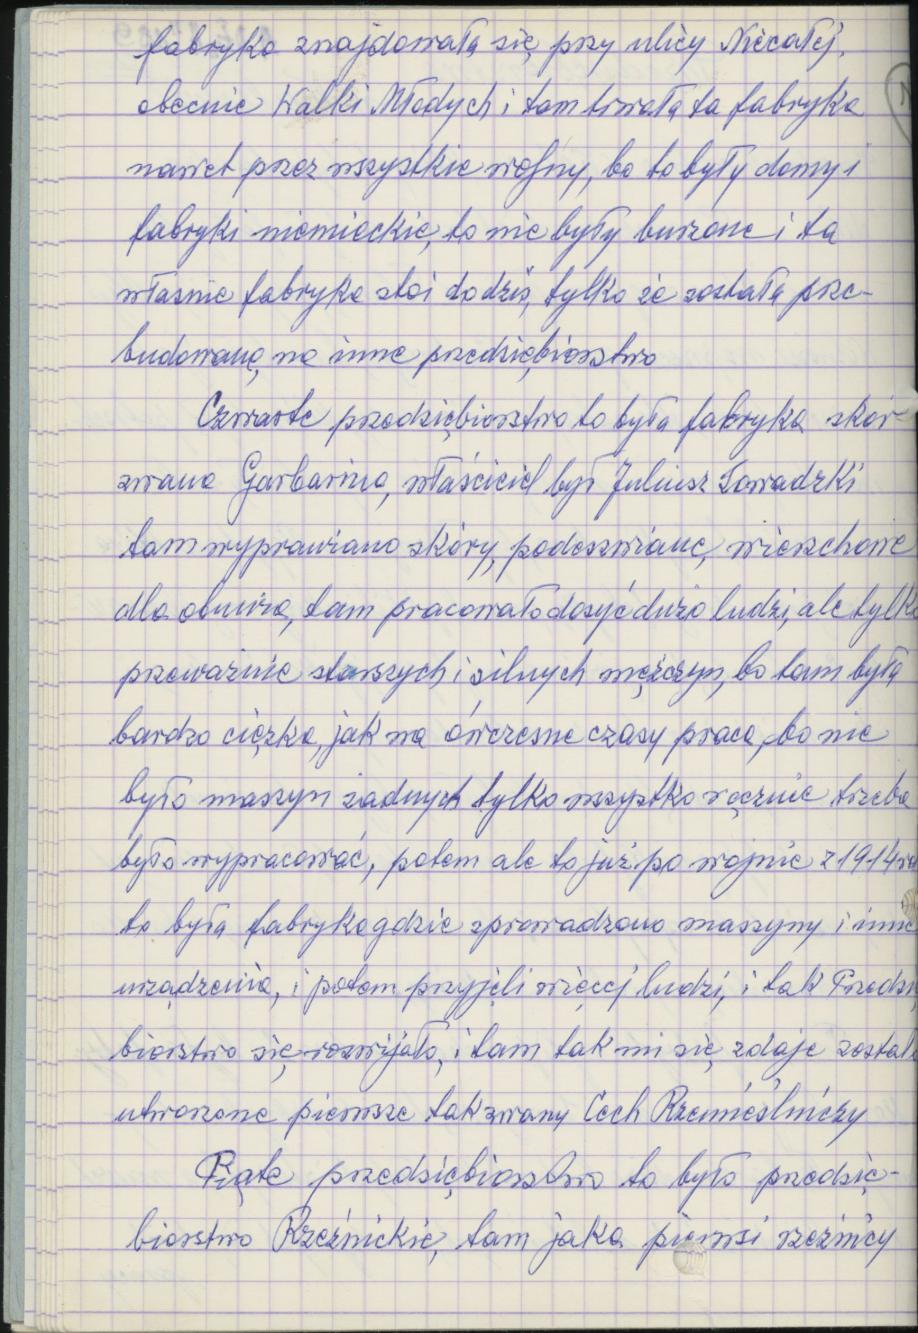 fabryka znajdowała się przy ulicy Niecałej,
obecnie Walki Młodych i tam trwała ta fabryka
nawet przez wszystkie wojny, bo to były domy i
fabryki niemieckie, to nie były burzone i ta
własnie fabryka stoi do dziś, tylko że została prze-
budowana, na inne przedsiębiorstwo
Czwarte przedsiębiorstwo to była fabryka skór
zwana Garbarina, właściciel był Juliusz Zawadzki
tam wyprawiano skóry, podeszwiane, wierzchowe
dla obuwia, tam pracowało dosyć dużo ludzi, ale tylko
przeważnie starszych i silnych męźczyn, bo tam była
bardzo cięzka, jak na ówczesne czasy praca, bo nie
było maszyn żadnych tylko wszystko ręcznie trzeba
było wypracować, potem ale to już po wojnie z 1914
to była fabryka gdzie sprowadzono maszyny i inne
urządzenia, i potem przyjęli więcej ludzi, i tak Przedsię
biorstwo się rozwijało, i tam tak mi się zdaje
utworzone pierwsze tak zwany Cech Rzemieślniczy
Piąte przedsiębiorstwo to było przedsię-
biorstwo Rzeźnickie, tam jako pierwsi rzeźnicy